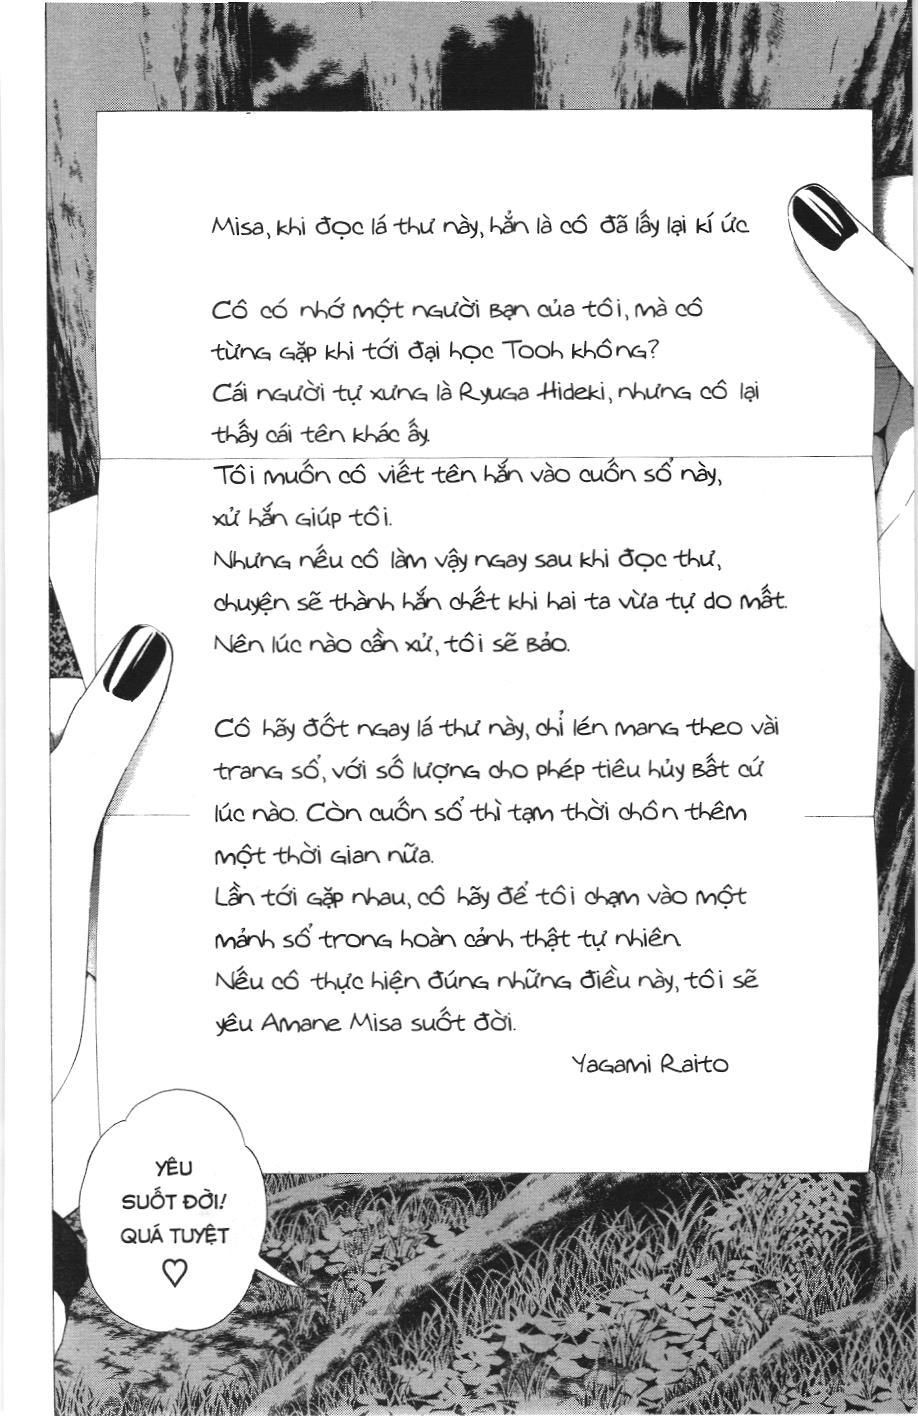 Misa, khi đọc lá thư này, hẳn là cô đã lấy lại kí ức.
Cô có nhớ một người bạn của tôi, mà cô
từng gặp khi tới đại học Tooh không?
Cái người tự xưng là Ryuga Hideki, nhưng cô lại
thấy cái tên khác ấy.
Tôi muốn cô viết tên hắn vào cuốn sổ này,
xử hắn giúp tôi.
Nhưng nếu cô làm vậy ngay sau khi đọc thư,
chuyện sẽ thành hắn chết khi hai ta vừa tự do mất.
Nên lúc nào cần xử, tôi sẽ bảo.
Cô hãy đốt ngay lá thư này, chỉ lén mang theo vài
trang sổ, với số lượng cho phép tiêu hủy bất cứ
lúc nào. Còn cuốn sổ thì tạm thời chôn thêm
một thời gian nữa.
Lần tới gặp nhau, cô hãy để tôi chạm vào một
mảnh sổ trong hoàn cảnh thật tự nhiên.
Nếu cô thực hiện đúng những điều này, tôi sẽ
yêu Amane Misa suốt đời.
Yagami Raito
YÊU
SUỐT ĐỜI!
QUÁ TUYỆT
♡